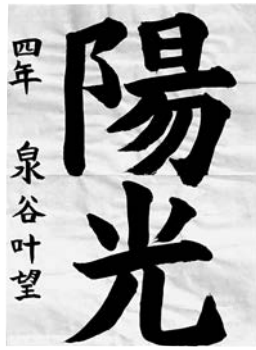 陽光
四年 泉谷叶望